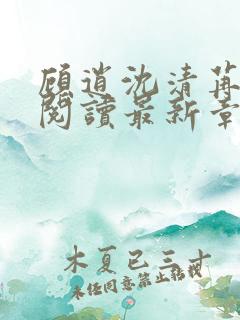 顧逍沈清苒
閱讀最新章
木夏已三十
未任同意禁止轉載